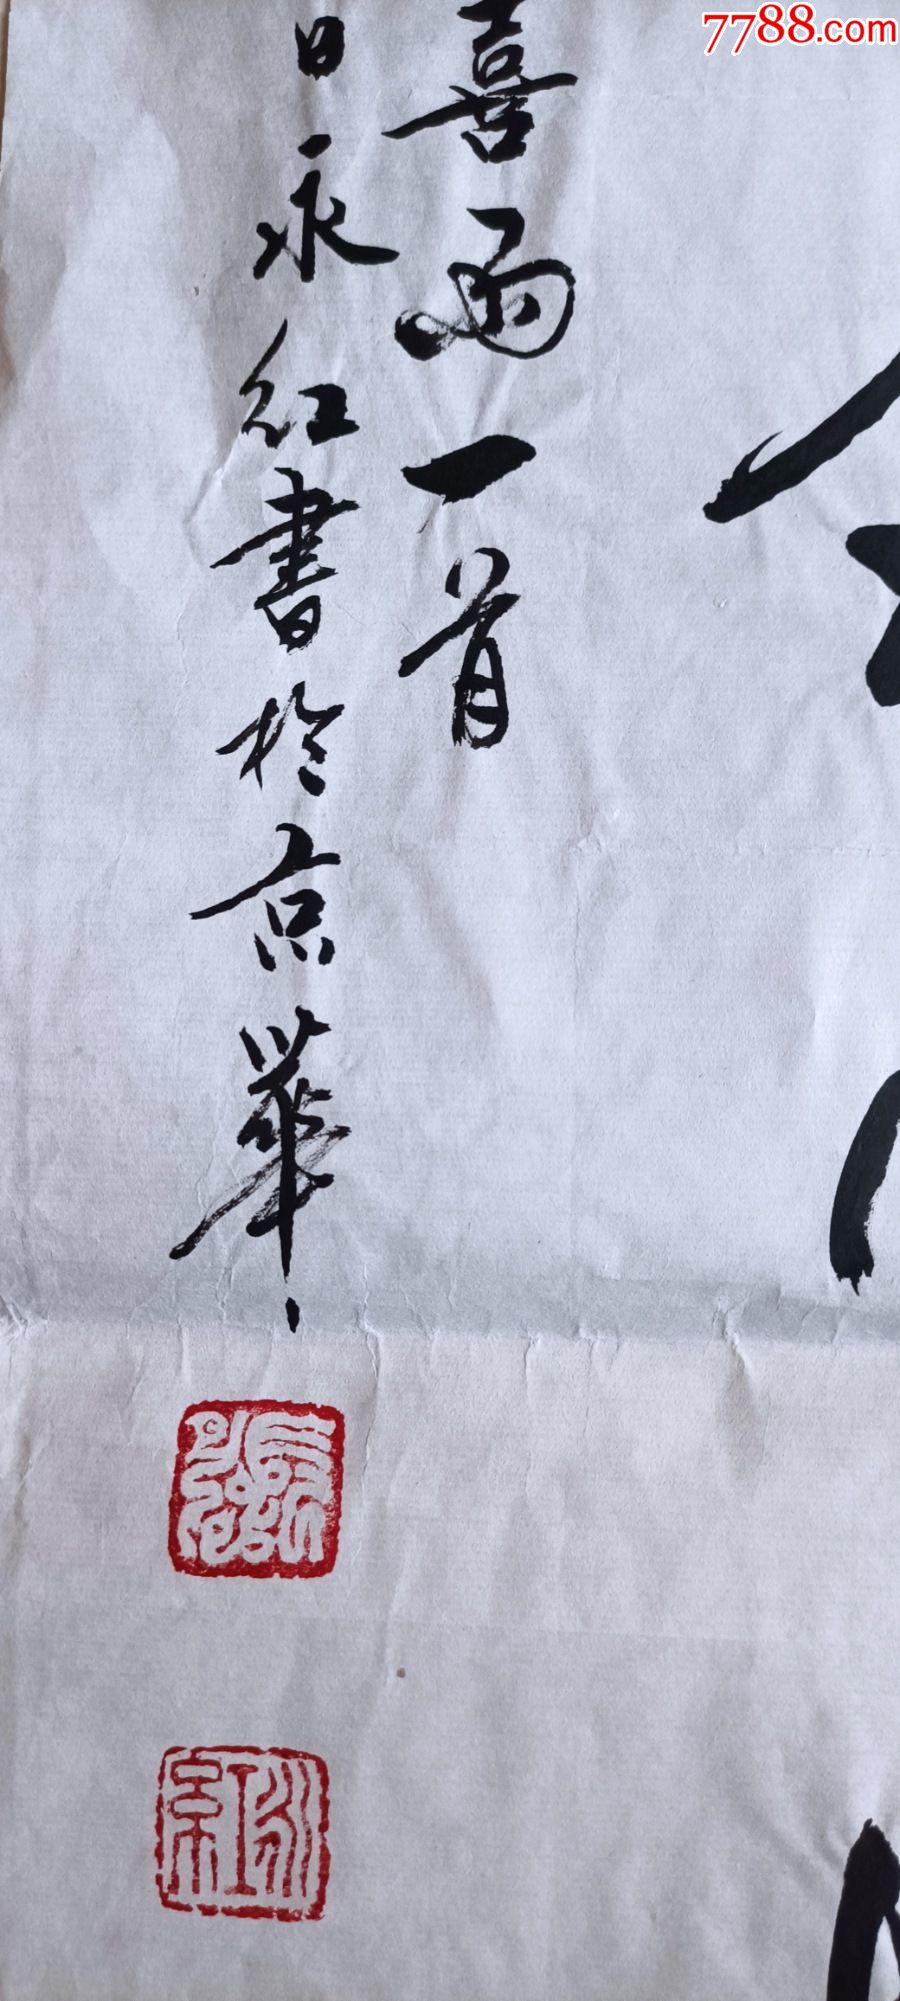 7788.com
喜雨一首
日永红書於京華
永红